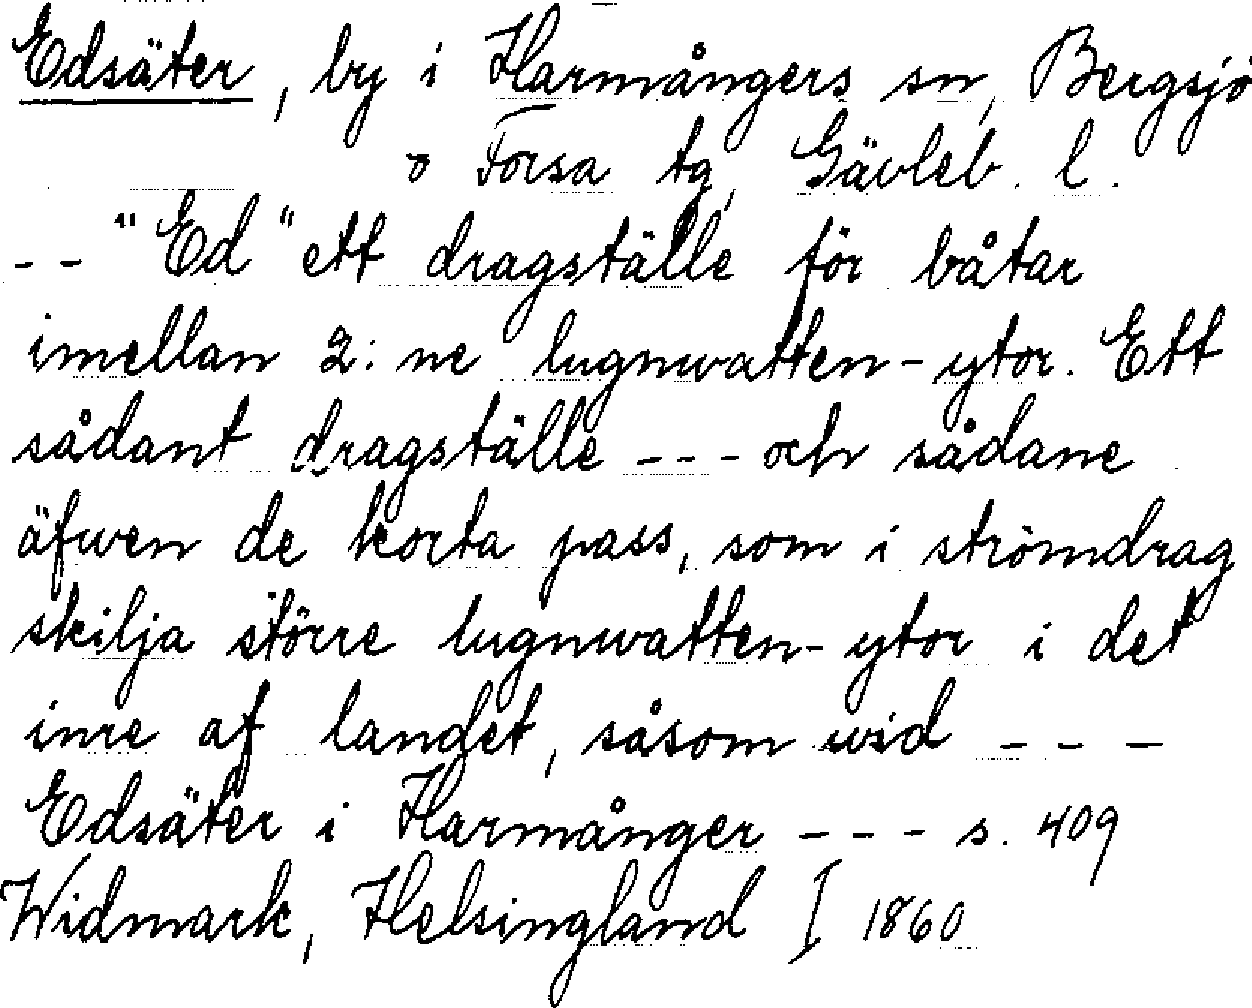 Edsäter, by i Harmångers sn, Bergsjö
o Forsa tg, Gävleb. l.
-- "Ed" ett dragställe för båtar
imellan 2:ne lugnwatten-ytor. Ett
sådant dragställe --- och sådane
äfwen de korta pass, som i strömdrag
skilja större lugnwatten-ytor i det
inre af landet, såsom wid ---
Edsäter i Harmånger --- s. 409
Widmark, Helsingland I 1860